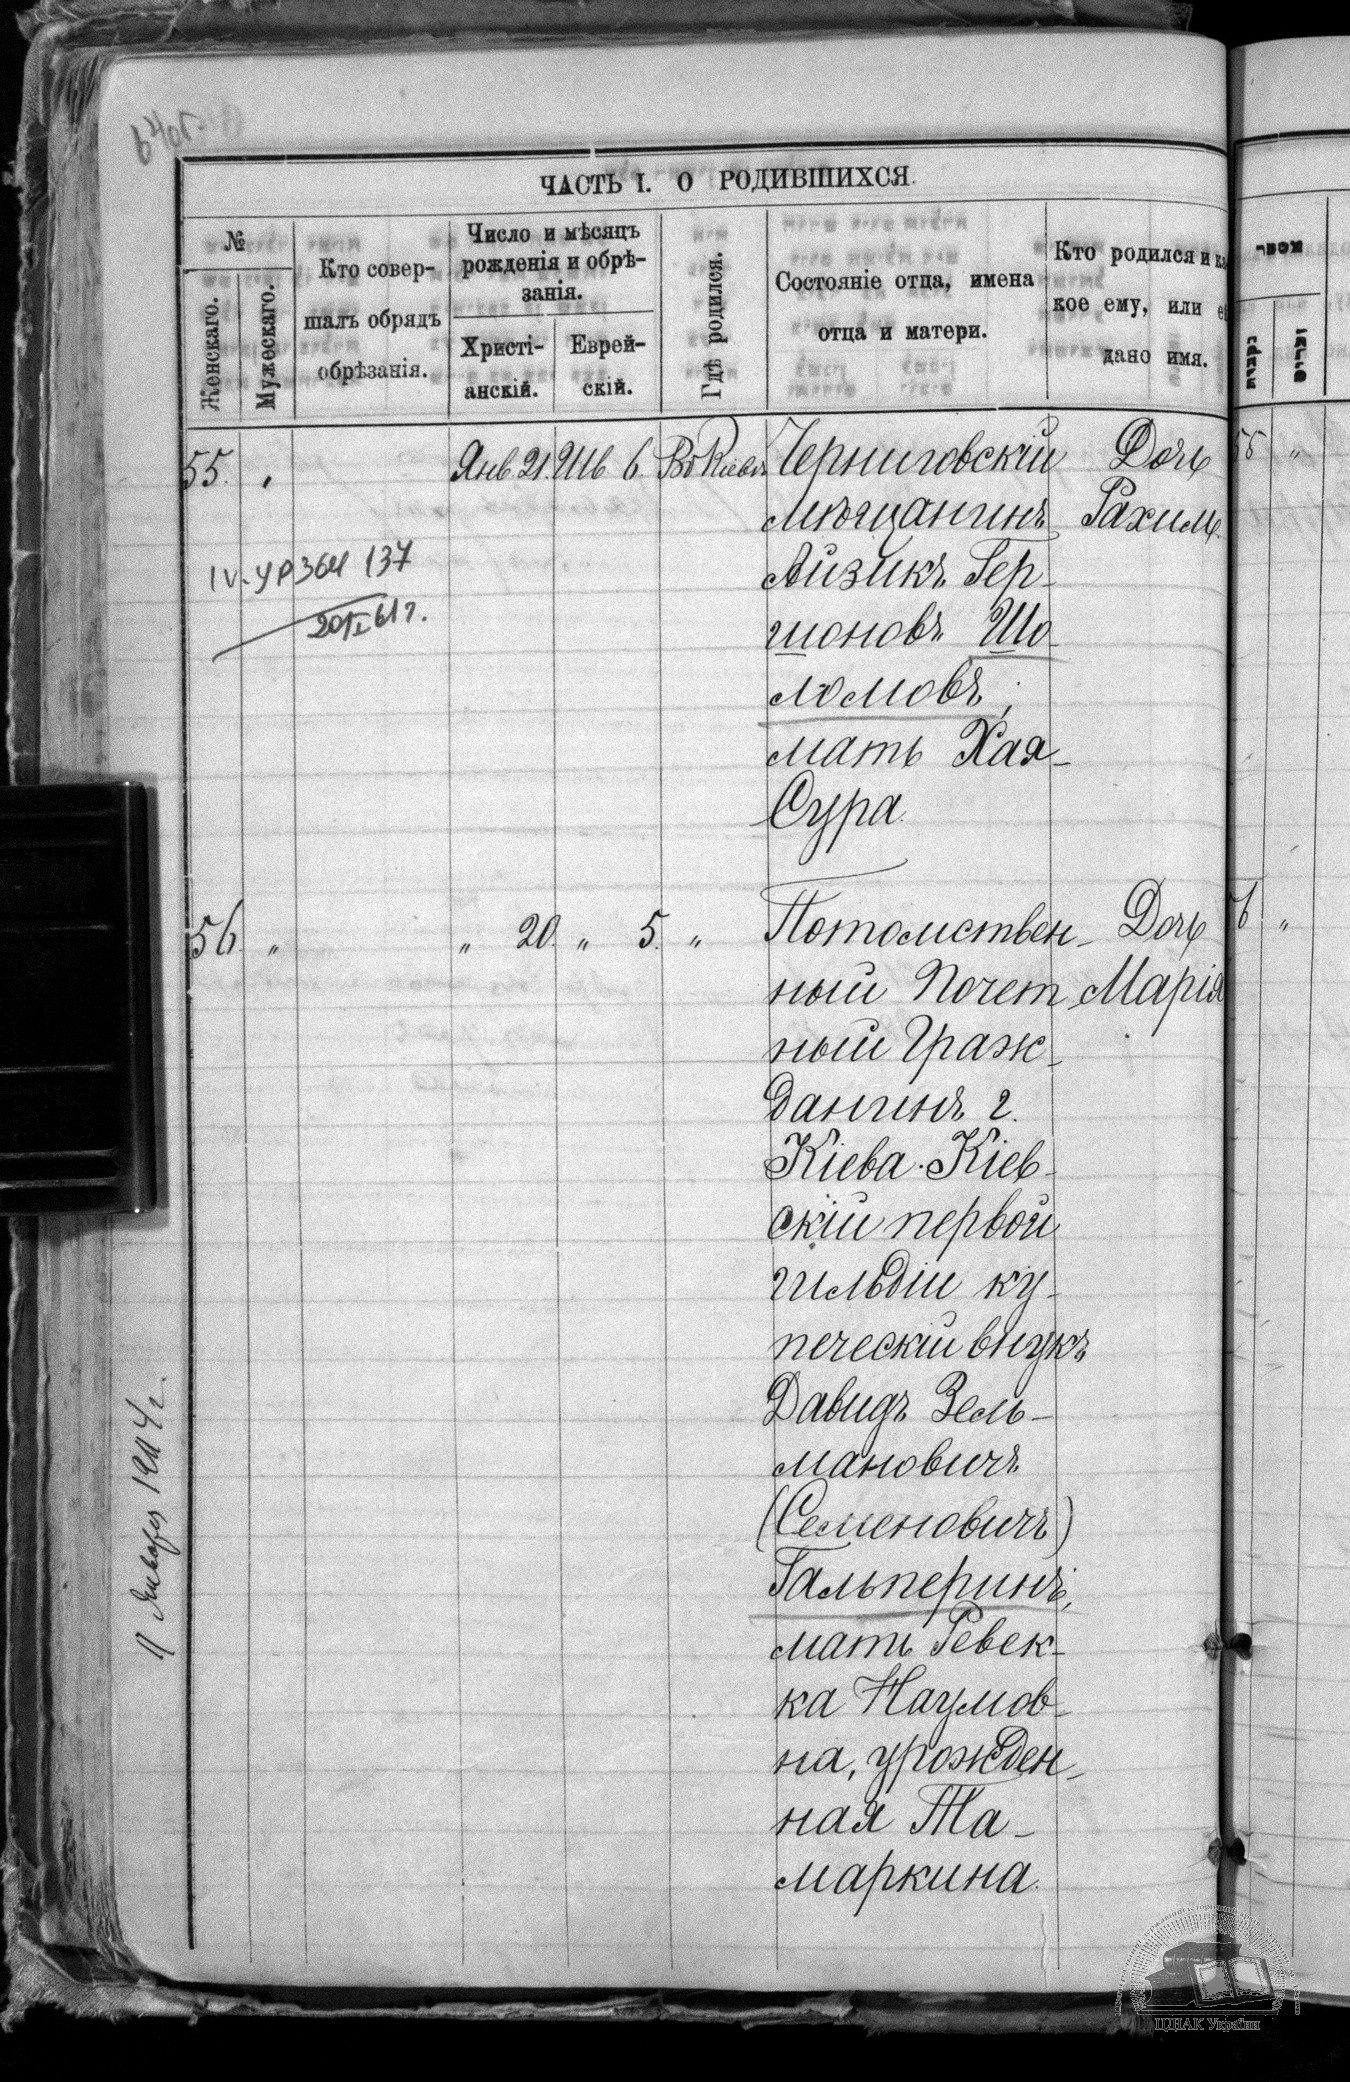 64об.
ЧАСТЬ I. О РОДИВШИХСЯ.
№
Женскаго.
Мужескаго.
Кто совер-
шалъ обрядъ
обрѣзанія.
Число и мѣсяцъ
рожденія и обрѣ-
занія.
Христі-
анскій.
Еврей-
скій.
Гдѣ родился.
Состояніе отца, имена
отца и матери.
Кто родился и ка-
кое ему, или ей
дано имя.
55. „ Янв 21. Шв 6. Въ Кіевѣ
Черниговскій
мѣщанинъ
Айзикъ Гер-
шоновъ Шо-
ломовъ;
мать Хая-
Сура.
Дочь
Рахиль.
137
20/I 61 г.
56. „ „ 20 „ 5. „
Потомствен-
ный Почет-
ный Граж-
данинъ г.
Кіева. Кіев-
скій первой
гильдіи ку-
печескій внукъ
Давидъ Зель-
мановичъ
(Семеновичъ)
Гальперинъ,
мать Ревек-
ка Наумов-
на, урожден-
ная Та-
маркина.
Дочь
Марія
Января 1904 г.
נקבות
זכרים
55 „
„
ЦДІАК України